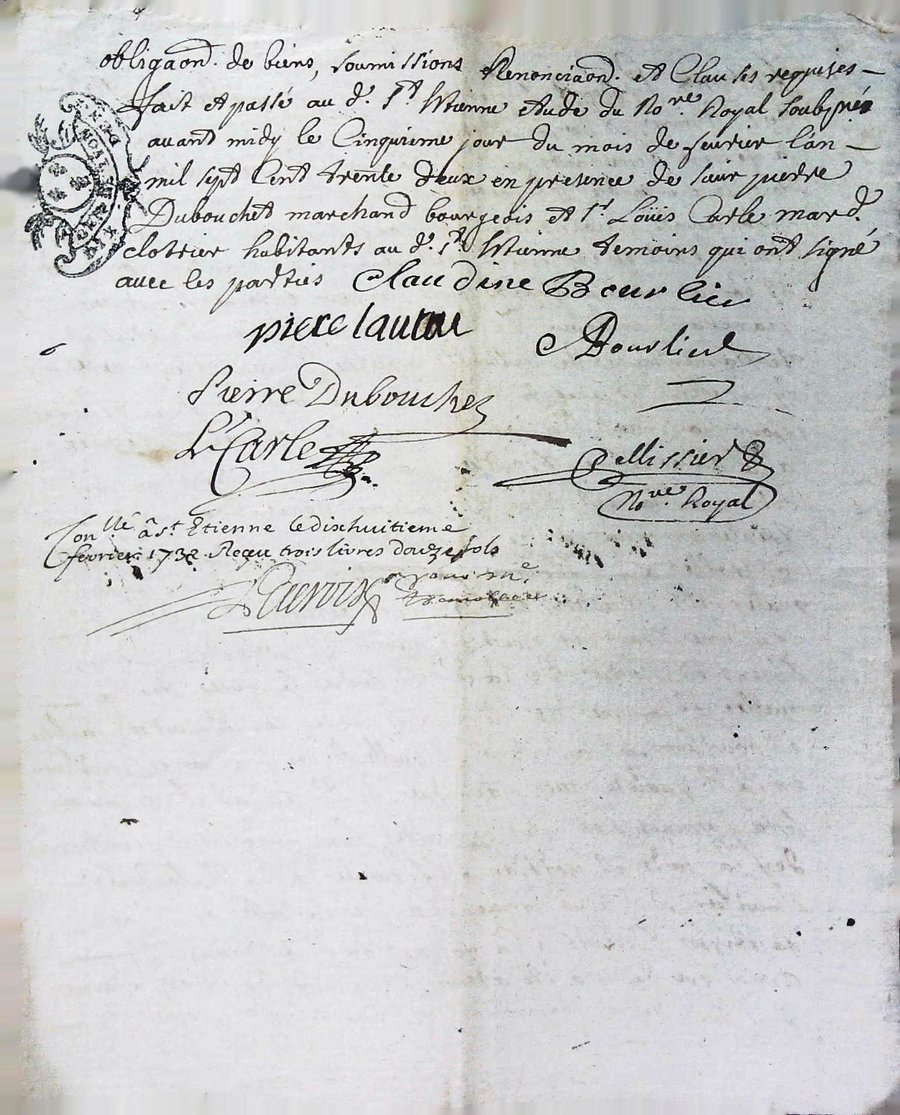 obligaond. de biens, soumissions Renonciaond. et Clauses requises
fait et passé au d. St. Etienne etude du Nore. Royal soubsné
avant midy le Cinquieme jour du mois de fevrier lan
mil sept Cent trente deux en presence de sieur pierre
Dubouchet marchand bourgeois et sr. Loüis Carle mard.
clotrier habitants au d. St. Etienne temoins qui ont signé
avec les parties Claudine Bourlier
piere
Bourlier
Pierre Dubouchet
L. Carle
Pellissier
Nore. Royal
Conllé a St. Etienne le dixhuitieme
fevrier 1732 Receu trois livres douze sols